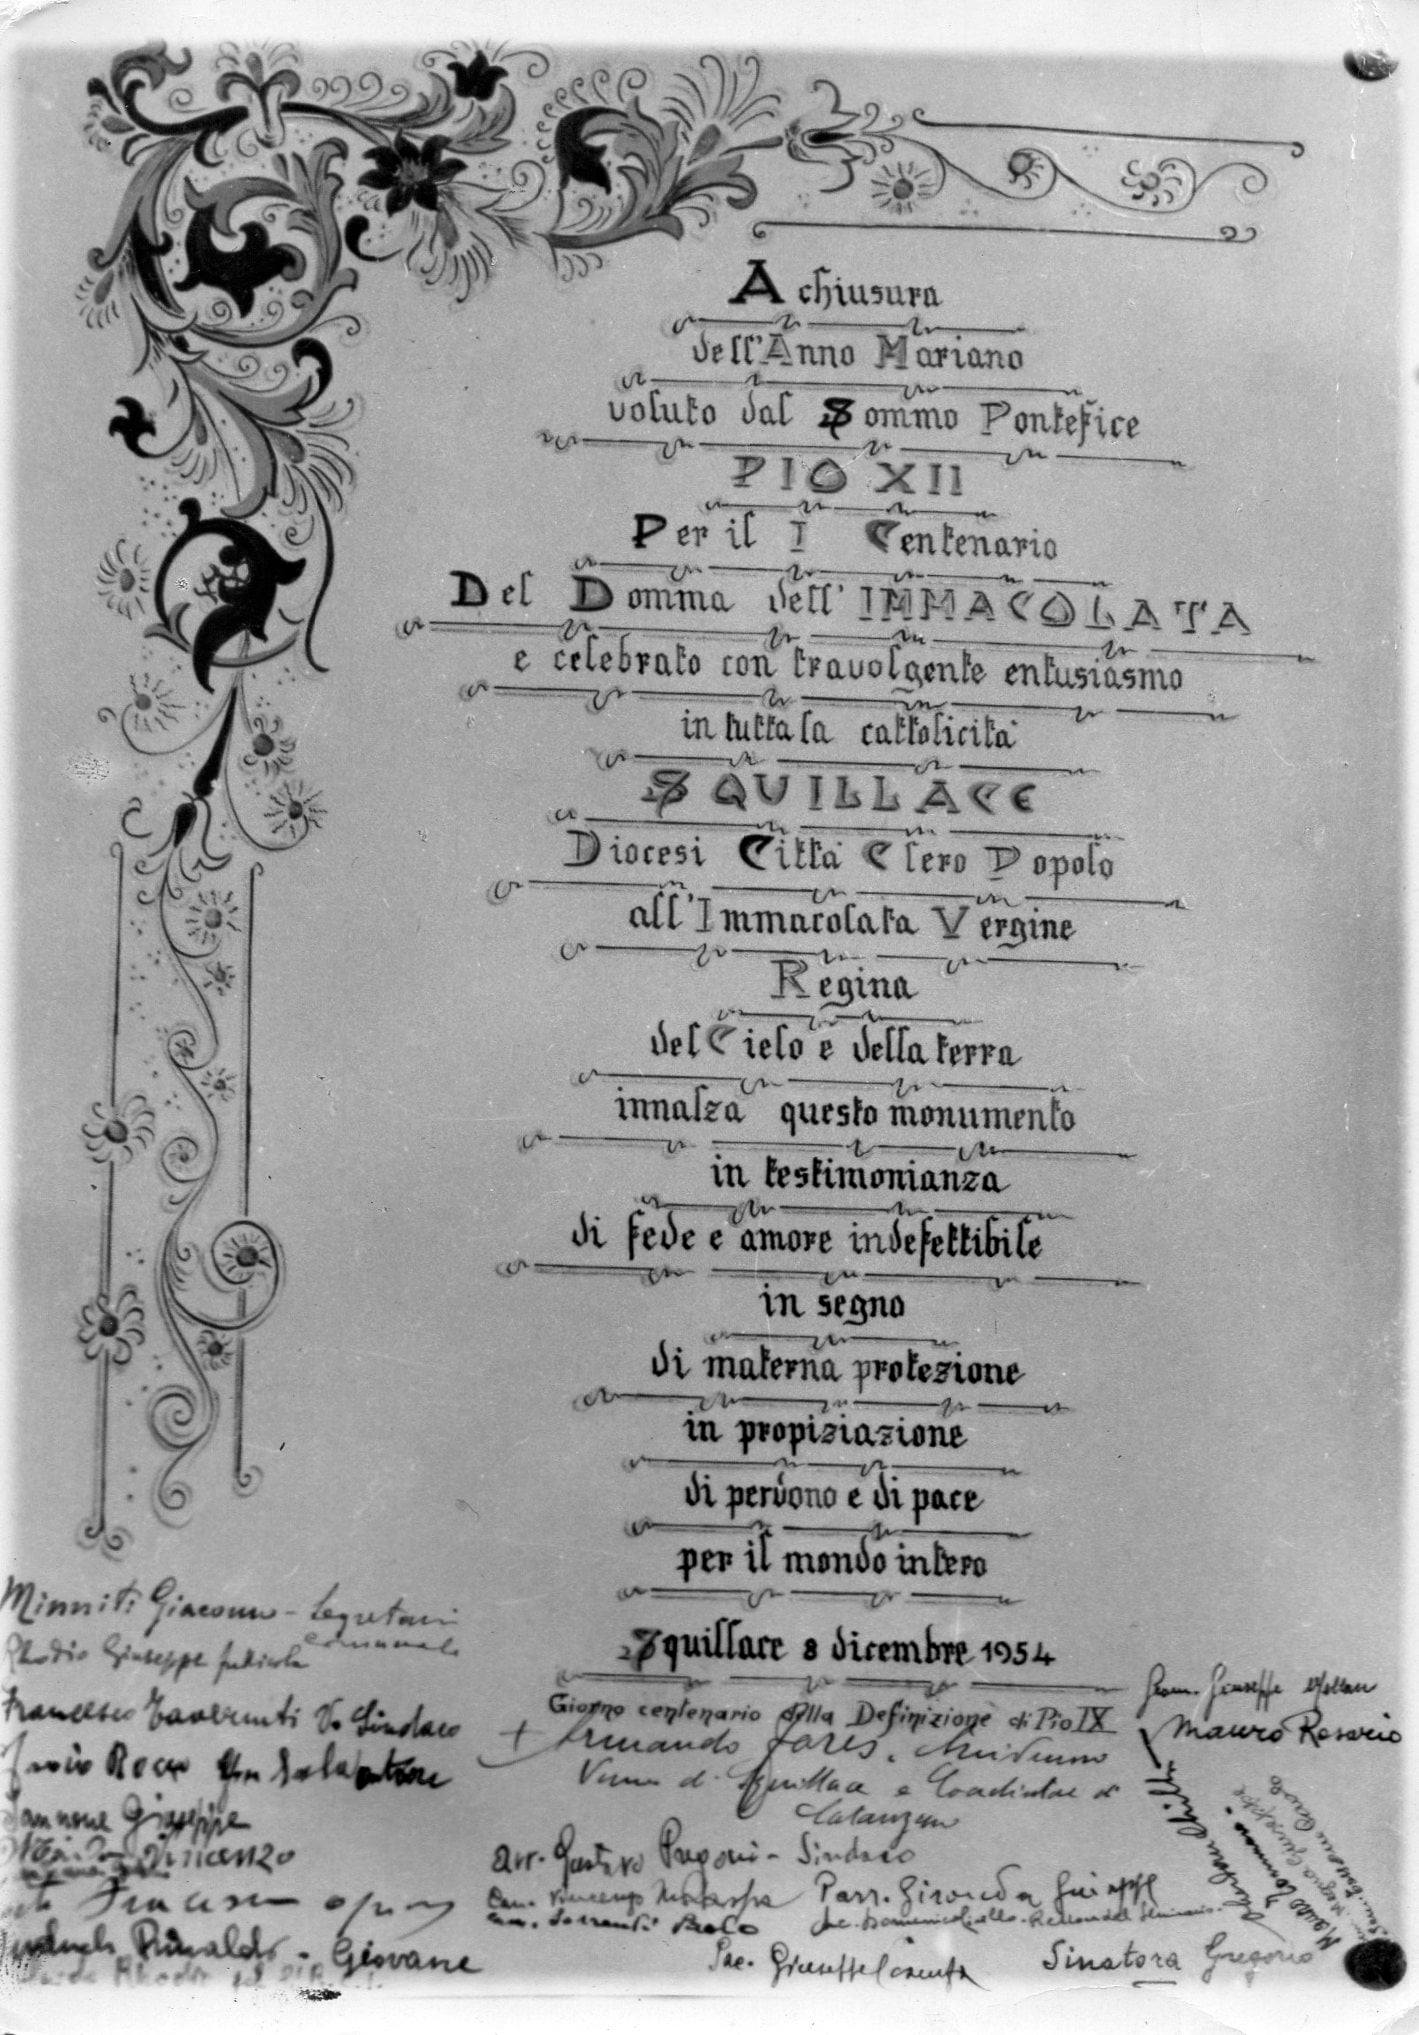 A chiusura
dell'Anno Mariano
voluto dal Sommo Pontefice
PIO XII
Per il I Centenario
Del Domma dell'IMMACOLATA
e celebrato con travolgente entusiasmo
in tutta la cattolicità
SQUILLACE
Diocesi Città Clero Popolo
all'Immacolata Vergine
Regina
del Cielo e della terra
innalza questo monumento
in testimonianza
di fede e amore indefettibile
in segno
di materna protezione
in propiziazione
di perdono e di pace
per il mondo intero
Squillace 8 dicembre 1954
Giorno centenario della Definizione di Pio IX
+ Armando Fares, Arcivescovo
Vescovo di Squillace e Coadiutore di
Catanzaro
Avv. Gustavo Pugoni - Sindaco
Can. Vincenzo
Parr. Gironda Giuseppe
Can. Sorrenti Paolo
Sac. Giuseppe
Sinatora Gregorio
Minniti Giacomo - Segretario
comunale
Rhodio Giuseppe
Francesco V. Sindaco
Rocco Salvatore
Iannone Giuseppe
Vincenzo
Rinaldo - Giovane
Geom. Giuseppe
Mauro Rosario